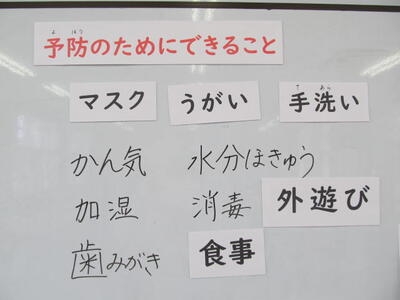 予防のためにできること
マスク うがい 手洗い
かん気 水分ほきゅう
加湿 消毒 外遊び
歯みがき 食事